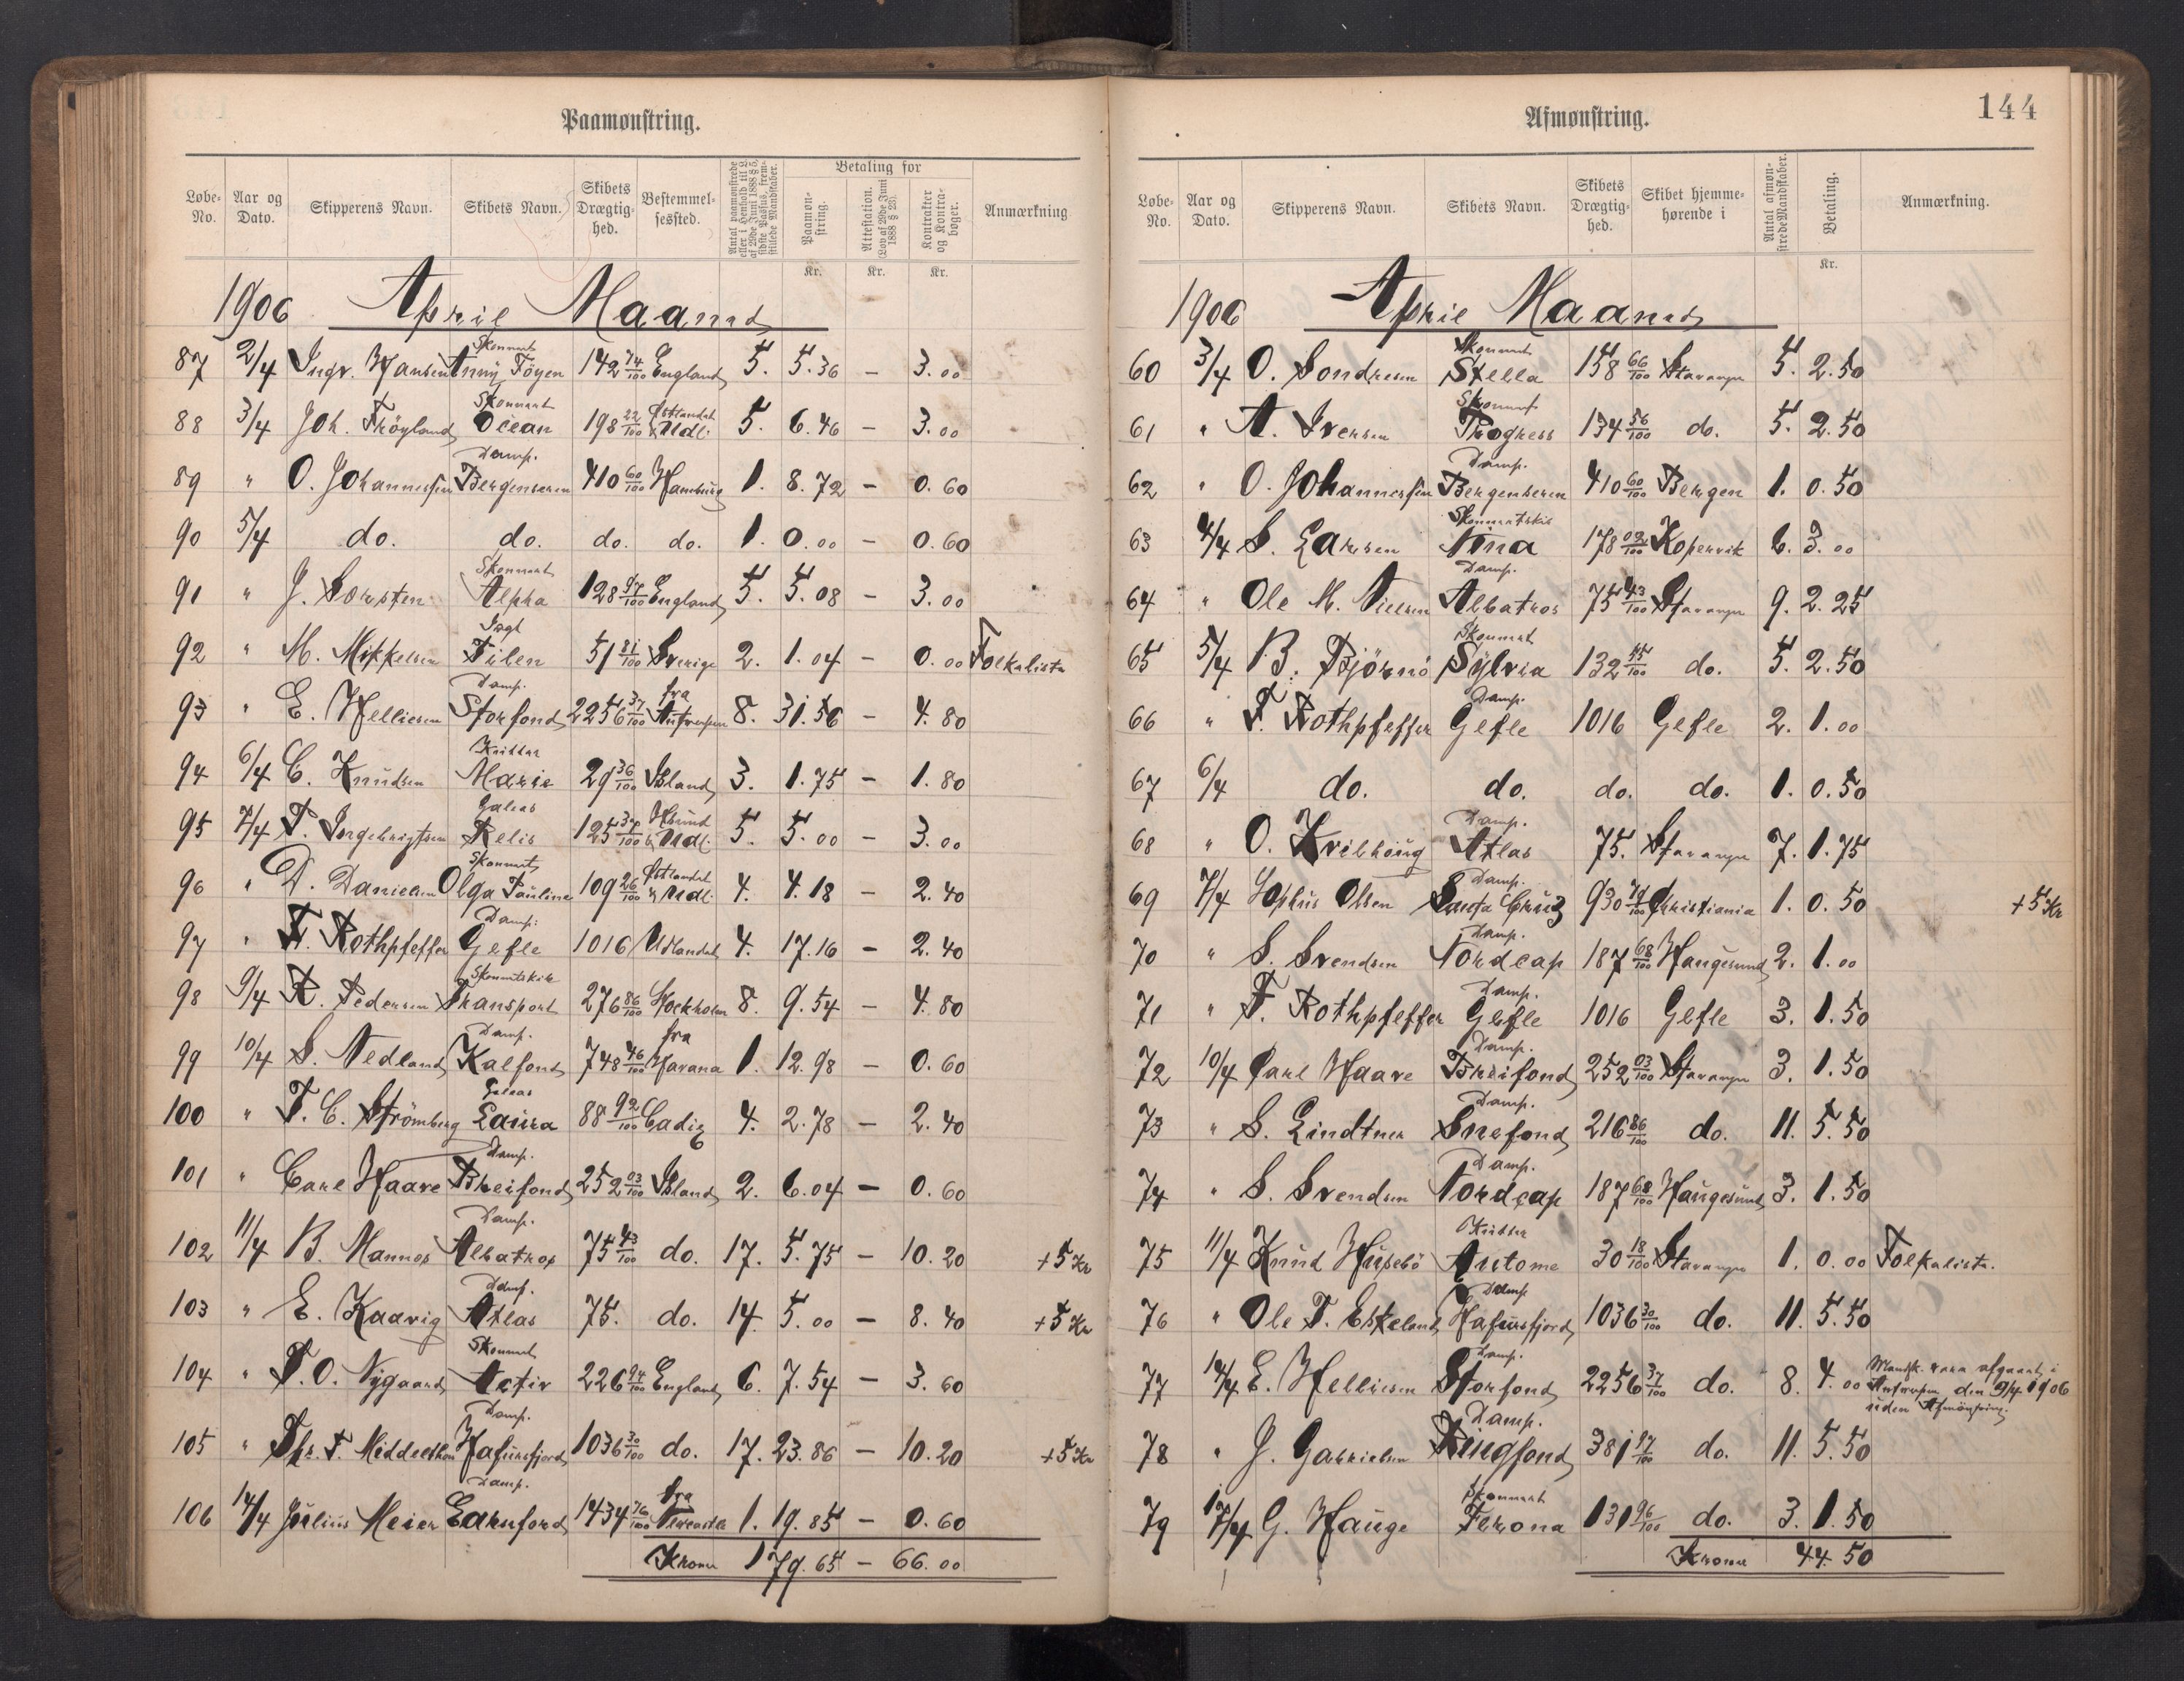 Paamønstring.
Løbe-No. Aar og Dato. Skipperens Navn. Skibets Navn. Skibets Drægtighed. Bestemmelsessted. Antal paamønstrede eller i Henhold til § af 29de Juni 1888 § 5, sidste Passus, fremstillede Mandskaber. Betaling for Paamønstring. Attestation. (Lov af 29de Juni 1888 § 23). Kontrakter og Kontrabøger. Anmærkning
Kr. Kr. Kr.
1906 April Maaned
87 2/4 Ingv. Hansen Skonnert Anny Föyen 142 74/100 England 5. 5.36 – 3.00
88 3/4 Joh. Fröyland Skonnert Ocean 198 22/100 Östlandet & Udl. 5. 6.46 – 3.00
89 " O. Johannessen Damp. Bergenseren 410 60/100 Hamburg 1. 8.72 – 0.60
90 5/4 do. do. do. do. 1. 0.00 – 0.60
91 " J. Torsten Skonnert Alpha 128 97/100 England 5. 5.08 – 3.00
92 " M. Mikkelsen Jagt Filen 51 81/100 Sverige 2. 1.04 – 0.00 Folkeliste
93 " E. Helliesen Damp. Storfond 2256 37/100 fra Antverpen 8. 31.56 – 4.80
94 6/4 C. Knudsen Kutter Marie 29 36/100 Island 3. 1.75 – 1.80
95 7/4 T. Ingebrigtsen Galeas Relis 125 37/100 & Udl. 5. 5.00 – 3.00
96 " D. Danielsen Skonnert Olga Pauline 109 26/100 Östlandet & Udl. 4. 4.18 – 2.40
97 " F. Rothpfeffer Damp. Gefle 1016 Udlandet 4. 17.16 – 2.40
98 9/4 R. Pedersen Skonnertskib Transport 276 86/100 Stockholm 8. 9.54 – 4.80
99 10/4 S. Nedland Damp. Kalfond 748 46/100 fra Havana 1. 12.98 – 0.60
100 " F. C. Strömberg Galeas Laura 88 92/100 Cadiz 4. 2.78 – 2.40
101 " Carl Haave Damp. Breifond 252 03/100 Island 2. 6.04 – 0.60
102 11/4 B. Mannes Damp. Albatros 75 43/100 do. 17. 5.75 – 10.20 + 5 Kr
103 " E. Kaavig Damp. Atlas 75. do. 14. 5.00 – 8.40 + 5 Kr
104 " T. O. Nygaard Skonnert Activ 226 94/100 England 6. 7.54 – 3.60
105 " Chr. F. Middelthon Damp. Hafursfjord 1036 30/100 do. 17. 23.86 – 10.20 + 5 Kr
106 14/4 Julius Meier Damp. Garnfond 1434 76/100 fra Newcastle 1. 19.85 – 0.60
Kroner 179.65 – 66.00
144
Afmønstring.
Løbe-No. Aar og Dato. Skipperens Navn. Skibets Navn. Skibets Drægtighed. Skibet hjemmehørende i Antal afmønstrede Mandskaber. Betaling. Anmærkning.
Kr.
1906 April Maaned
60 3/4 O. Sondresen Skonnert Stella 158 66/100 Stavanger 5. 2.50
61 " A. Iversen Skonnert Progress 134 56/100 do. 5. 2.50
62 " O. Johannessen Damp. Bergenseren 410 60/100 Bergen 1. 0.50
63 4/4 S. Larsen Skonnertskib Nina 178 02/100 Kopervik 6. 3.00
64 " Ole M. Nielsen Damp. Albatros 75 43/100 Stavanger 9. 2.25
65 5/4 B. Björnö Skonnert Sylvia 132 45/100 do. 5. 2.50
66 " F. Rothpfeffer Damp. Gefle 1016 Gefle 2. 1.00
67 6/4 do. do. do. do. 1. 0.50
68 " O. Kvilhoug Damp. Atlas 75. Stavanger 7. 1.75
69 7/4 Sophus Olsen Damp. Santa Cruz 930 74/100 Christiania 1. 0.50 + 5 Kr
70 " S. Svendsen Damp. Nordcap 187 68/100 Haugesund 2. 1.00
71 " F. Rothpfeffer Damp. Gefle 1016 Gefle 3. 1.50
72 10/4 Carl Haave Damp. Breifond 252 03/100 Stavanger 3. 1.50
73 " S. Lindtner Damp. Snefond 216 86/100 do. 11. 5.50
74 " S. Svendsen Damp. Nordcap 187 68/100 Haugesund 3. 1.50
75 11/4 Knud Husebö Kutter Autome 30 18/100 Stavanger 1. 0.00 Folkeliste.
76 " Ole T. Eskeland Damp Hafursfjord 1036 30/100 do. 11. 5.50
77 12/4 E. Helliesen Damp. Storfond 2256 37/100 do. 8. 4.00 Mandsk. vare afgaaet i Antverpen den 9/4 1906 uden Afmönstring.
78 " J. Gabrielsen Damp. Ringfond 381 97/100 do. 11. 5.50
79 17/4 G. Hauge Skonnert Ferona 131 96/100 do. 3. 1.50
Kroner 44.50